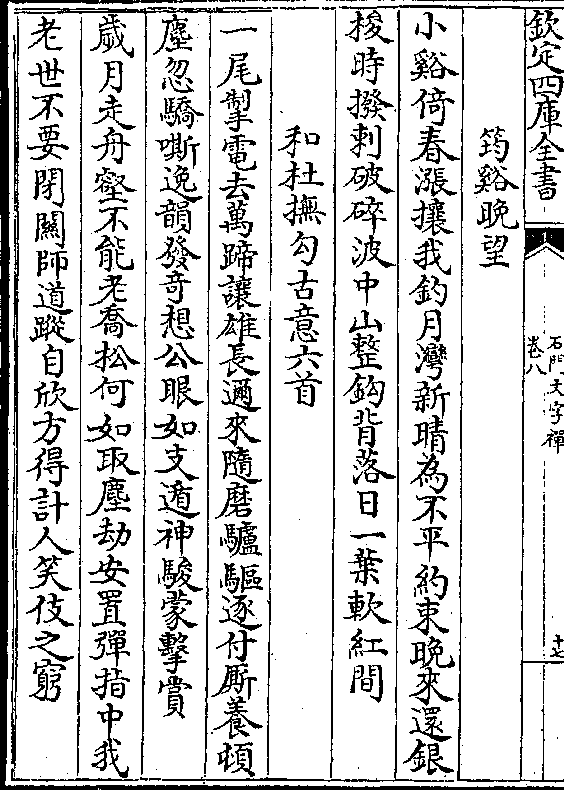 欽定四庫全書
石門文字禪
卷八
十七
筠谿晚望
小谿倚春漲攘我釣月灣新晴為不平約束晚來還銀
梭時撥剌破碎波中山整鈎背落日一葉軟紅間
和杜撫勾古意六首
一尾掣電去萬蹄讓雄長邇來隨磨驢驅逐付厮養頓
塵忽驕嘶逸韻發奇想公眼如支遁神駿蒙擊賞
歲月走舟壑不能老喬松何如取塵劫安置彈指中我
老世不要閉關師道蹤自欣方得計人笑伎之窮